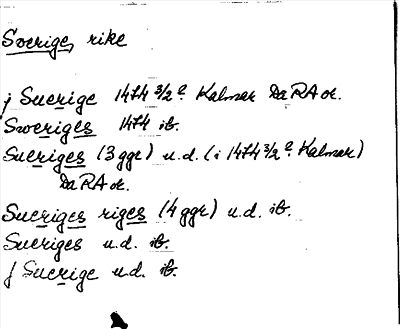 Sverige, rike
j Suerige 1474 3/2 ? Kalmar DaRA or.
Sweriges 1474 ib.
Sueriges (3 ggr) u.d. (i 1474 3/2 ? Kalmar)
DaRA or.
Sueriges riges (4 ggr) u.d. ib.
Sueriges u.d. ib.
j Suerige u.d. ib.